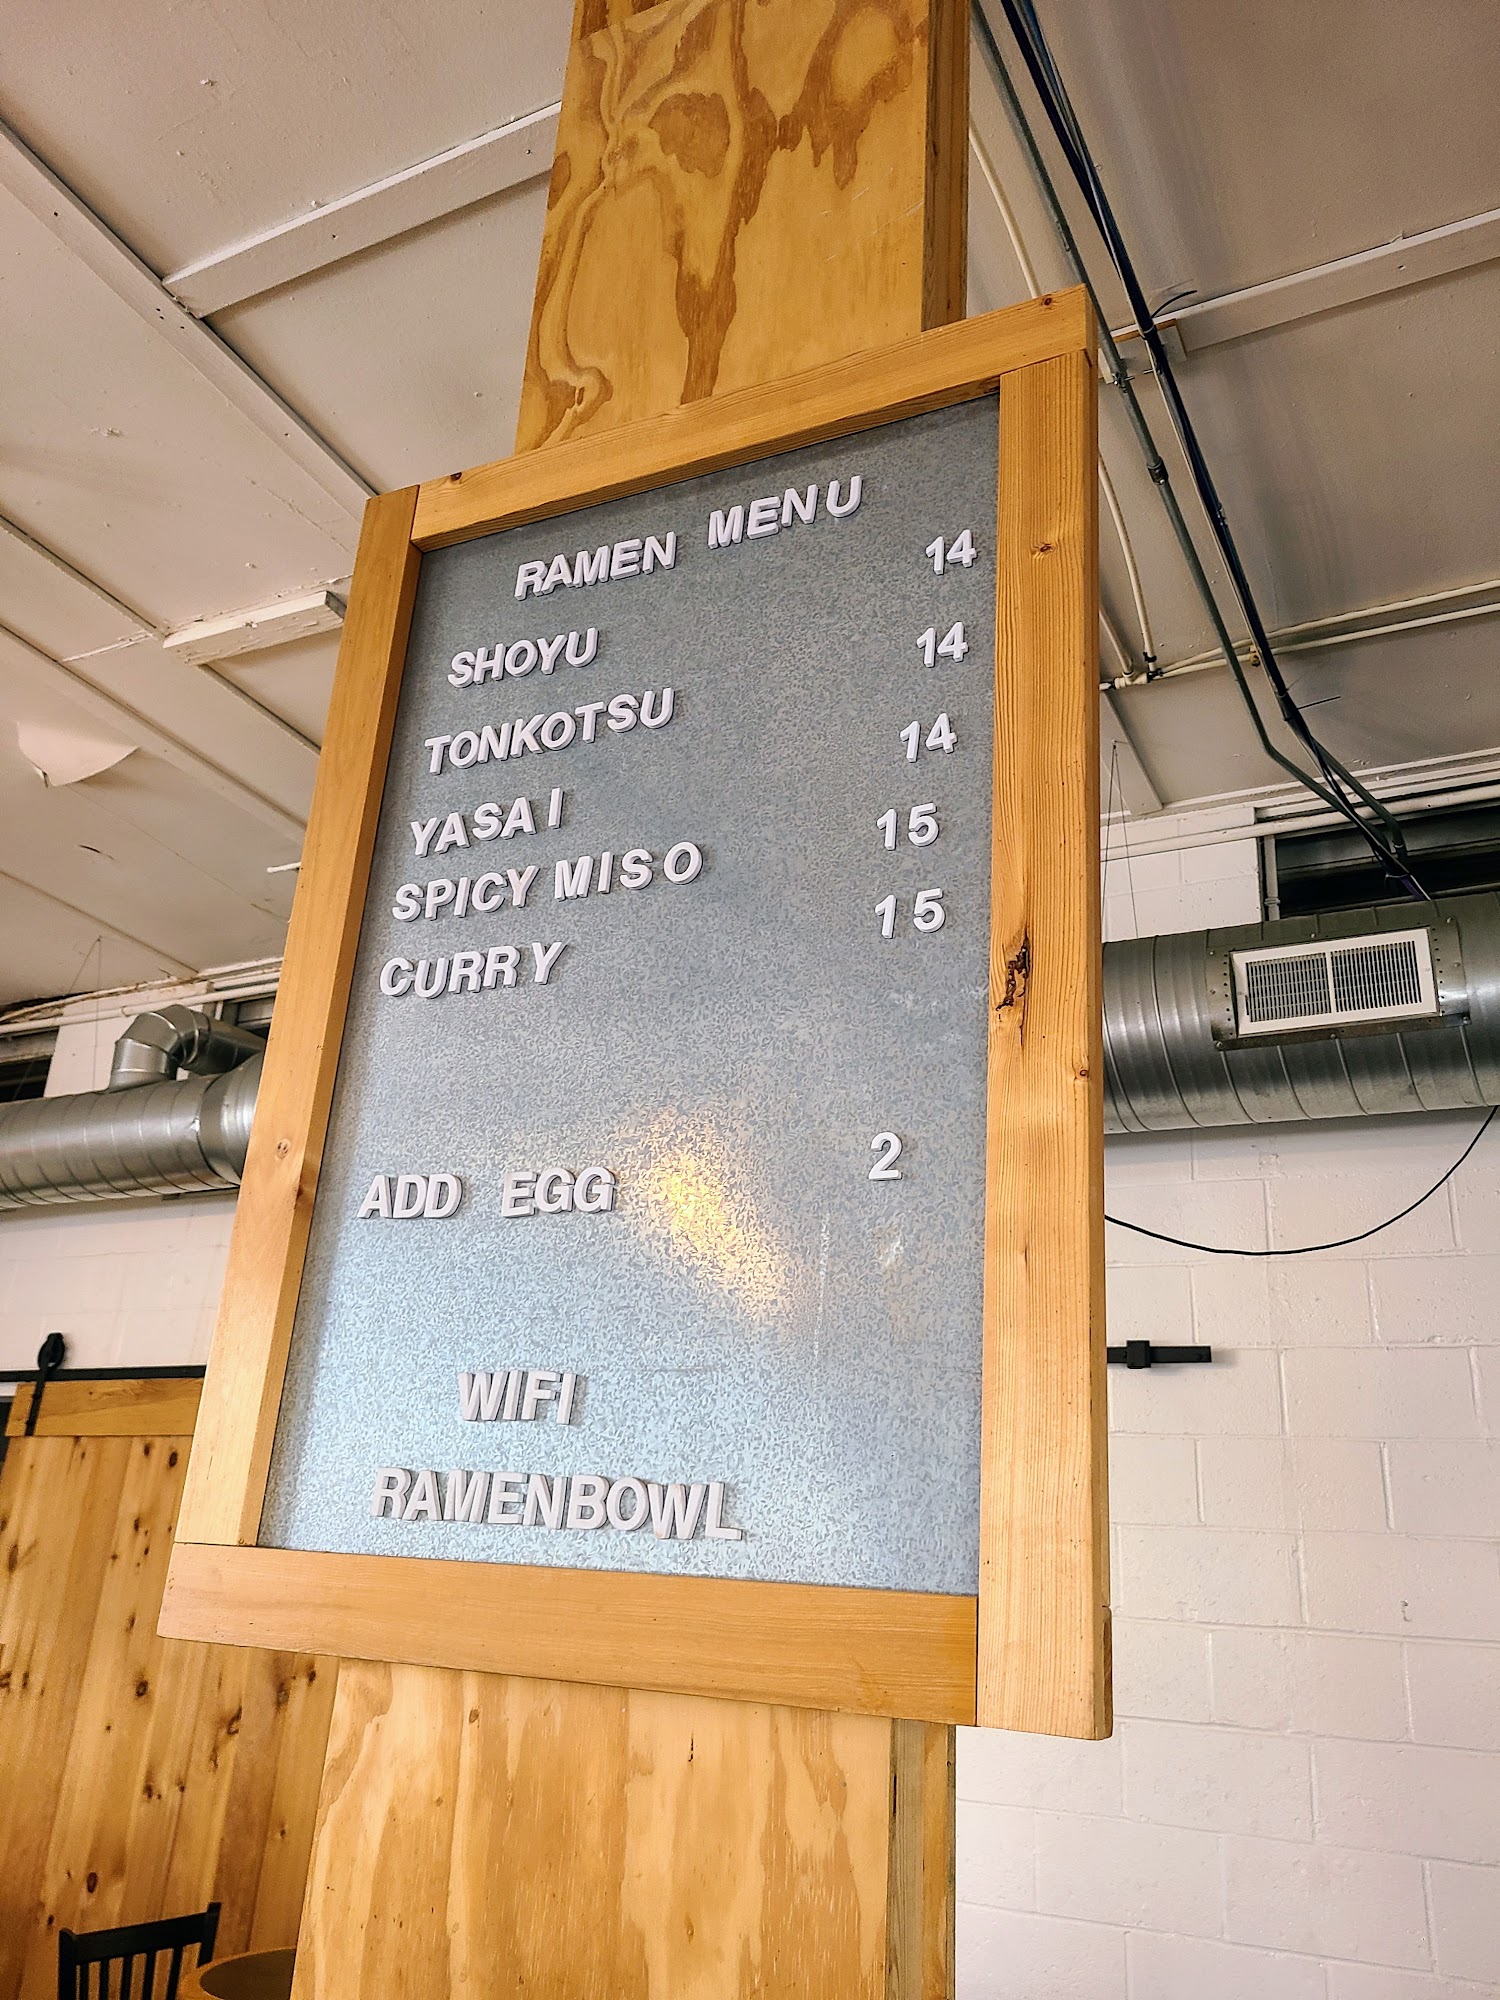 RAMEN MENU
SHOYU 14
TONKOTSU 14
YASAI 14
SPICY MISO 15
CURRY 15
ADD EGG 2
WIFI
RAMENBOWL